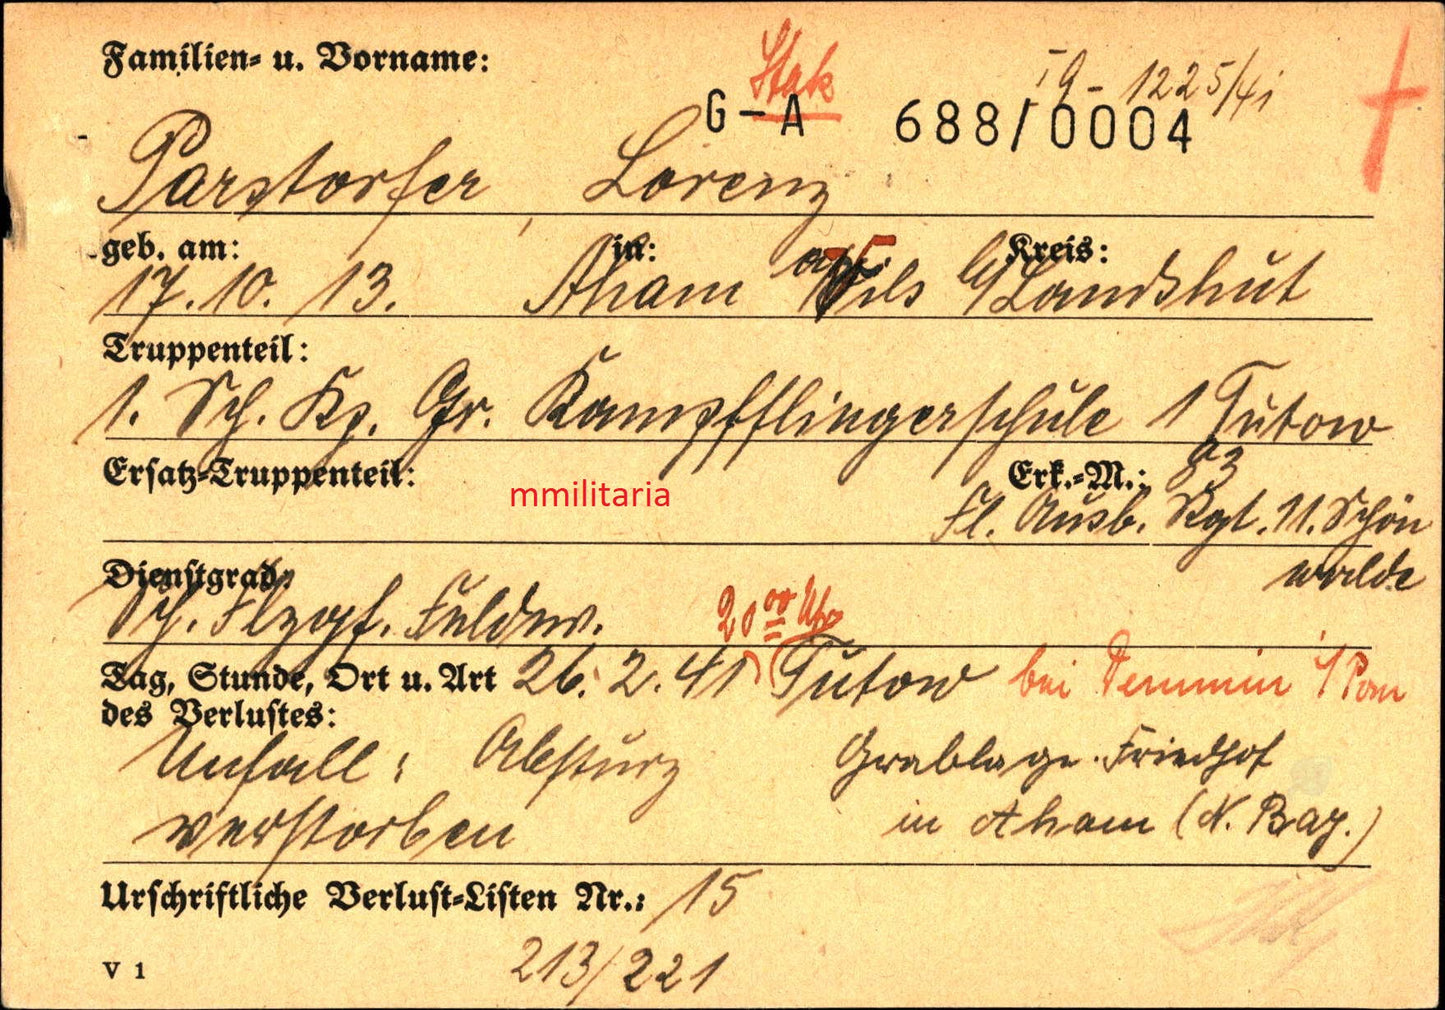 Familien- u. Vorname:
Stak
G-A 688/0004
19-1225/41
Parstorfer, Lorenz
geb. am: in: Kreis:
17.10.13. Aham a/Vils Landshut
Truppenteil:
1. Sch. Kp. Gr. Kampffliegerschule 1 Tutow
Ersatz-Truppenteil: Erk.-M.: 83
mmilitaria
Fl. Ausb. Rgt. 11. Schön
walde
Dienstgrad:
Flzgf. Feldw. 20 00 Uhr
Tag, Stunde, Ort u. Art 26.2.41 Tutow bei Demmin i/Pom
des Verlustes:
Unfall; Absturz Grablage. Friedhof
verstorben in Aham (N. Bay.)
Urschriftliche Verlust-Listen Nr.: 15
V 1 213/221